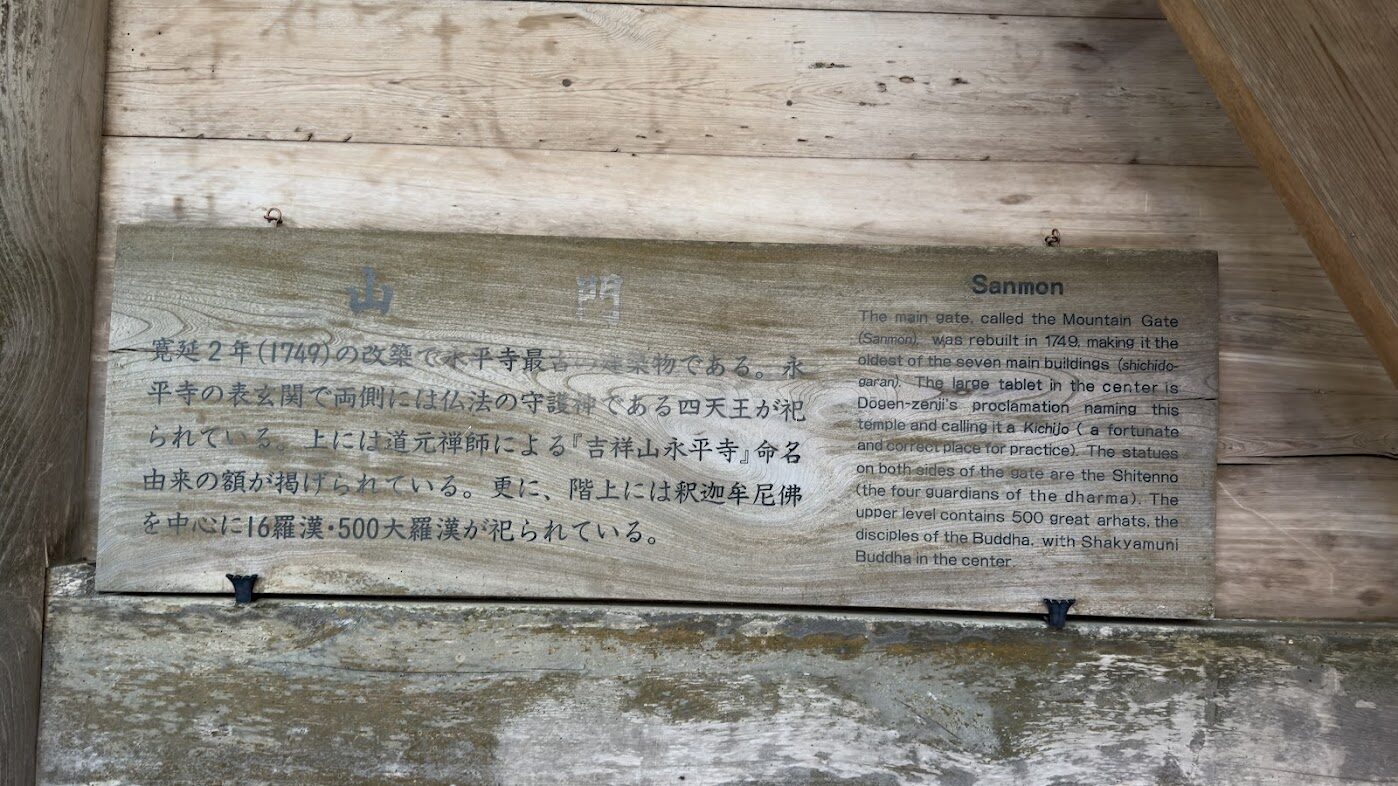 山門
寛延2年(1749)の改築で永平寺最古の建築物である。永
平寺の表玄関で両側には仏法の守護神である四天王が祀
られている。上には道元禅師による『吉祥山永平寺』命名
由来の額が掲げられている。更に、階上には釈迦牟尼佛
を中心に16羅漢・500大羅漢が祀られている。
Sanmon
The main gate, called the Mountain Gate
(Sanmon), was rebuilt in 1749, making it the
oldest of the seven main buildings (shichido-
garan). The large tablet in the center is
Dogen-zenji's proclamation naming this
temple and calling it a Kichijo ( a fortunate
and correct place for practice). The statues
on both sides of the gate are the Shitenno
(the four guardians of the dharma). The
upper level contains 500 great arhats, the
disciples of the Buddha, with Shakyamuni
Buddha in the center.